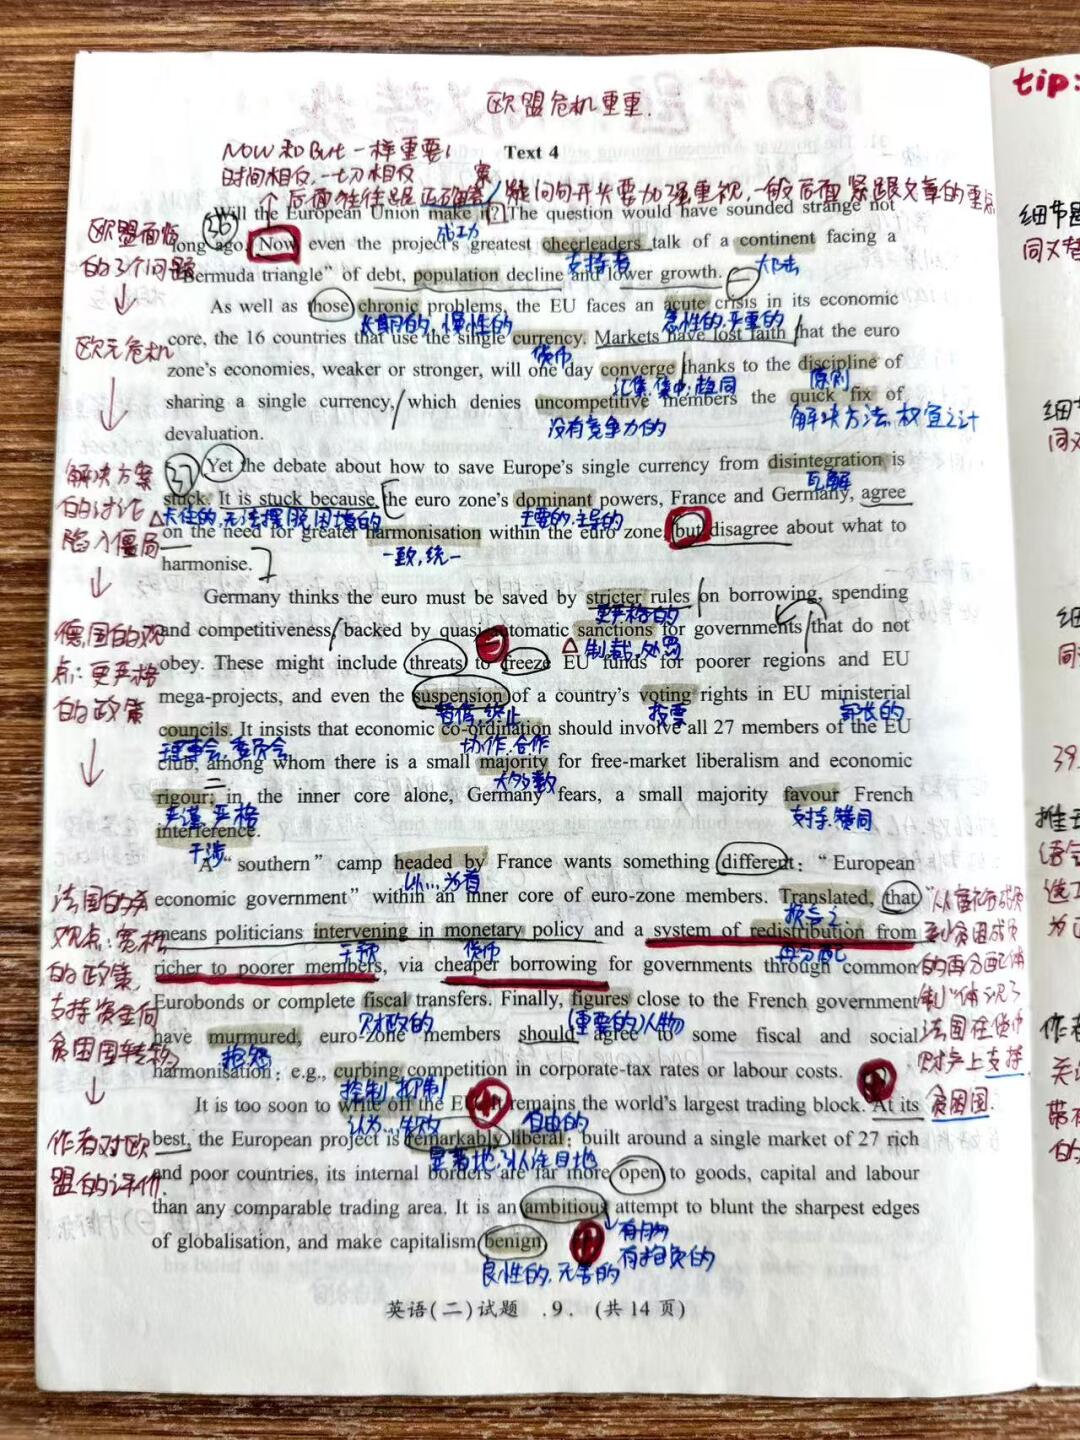 欧盟危机重重.
tip:
NOW和But一样重要!
Text 4
时间相反,一切相反
后面往往跟正确答案
疑问句开头要加强重视,一般后面紧跟文章的重点
欧盟面临的3个问题
36
Will the European Union make it? The question would have sounded strange not
成功
long ago. Now even the project's greatest cheerleaders talk of a continent facing a
支持者
大陆
"Bermuda triangle" of debt, population decline and lower growth.
As well as those chronic problems, the EU faces an acute crisis in its economic
长期的,慢性的
急性的,严重的
欧元危机
core, the 16 countries that use the single currency. Markets have lost faith that the euro
货币
zone's economies, weaker or stronger, will one day converge thanks to the discipline of
汇集,集中,趋同
原则
sharing a single currency, which denies uncompetitive members the quick fix of
没有竞争力的
解决方法,权宜之计
devaluation.
解决方案的讨论陷入僵局
37
Yet the debate about how to save Europe's single currency from disintegration is
瓦解
stuck. It is stuck because the euro zone's dominant powers, France and Germany, agree
卡住的,无法摆脱困境的
主要的,主导的
on the need for greater harmonisation within the euro zone, but disagree about what to
一致,统一
harmonise.
Germany thinks the euro must be saved by stricter rules on borrowing, spending
更严格的
德国的观点:更严格的政策
and competitiveness, backed by quasi-automatic sanctions for governments that do not
制裁,处罚
obey. These might include threats to freeze EU funds for poorer regions and EU
mega-projects, and even the suspension of a country's voting rights in EU ministerial
暂停,终止
投票
部长的
councils. It insists that economic co-ordination should involve all 27 members of the EU
理事会,委员会
协作,合作
club, among whom there is a small majority for free-market liberalism and economic
大多数
rigour; in the inner core alone, Germany fears, a small majority favour French
严谨,严格
支持,赞同
interference.
干涉
A "southern" camp headed by France wants something different: "European
以…为首
economic government" within an inner core of euro-zone members. Translated, that
means politicians intervening in monetary policy and a system of redistribution from
干预
货币
再分配
richer to poorer members, via cheaper borrowing for governments through common
Eurobonds or complete fiscal transfers. Finally, figures close to the French government
财政的
(重要的)人物
have murmured, euro-zone members should agree to some fiscal and social
抱怨
harmonisation: e.g., curbing competition in corporate-tax rates or labour costs.
控制,抑制
It is too soon to write off the EU. It remains the world's largest trading block. At its
自由的
作者对欧盟的评价
best, the European project is remarkably liberal: built around a single market of 27 rich
显著地,引人注目地
and poor countries, its internal borders are far more open to goods, capital and labour
than any comparable trading area. It is an ambitious attempt to blunt the sharpest edges
of globalisation, and make capitalism benign.
有抱负的
良性的,无害的
英语(二)试题 .9. (共14页)